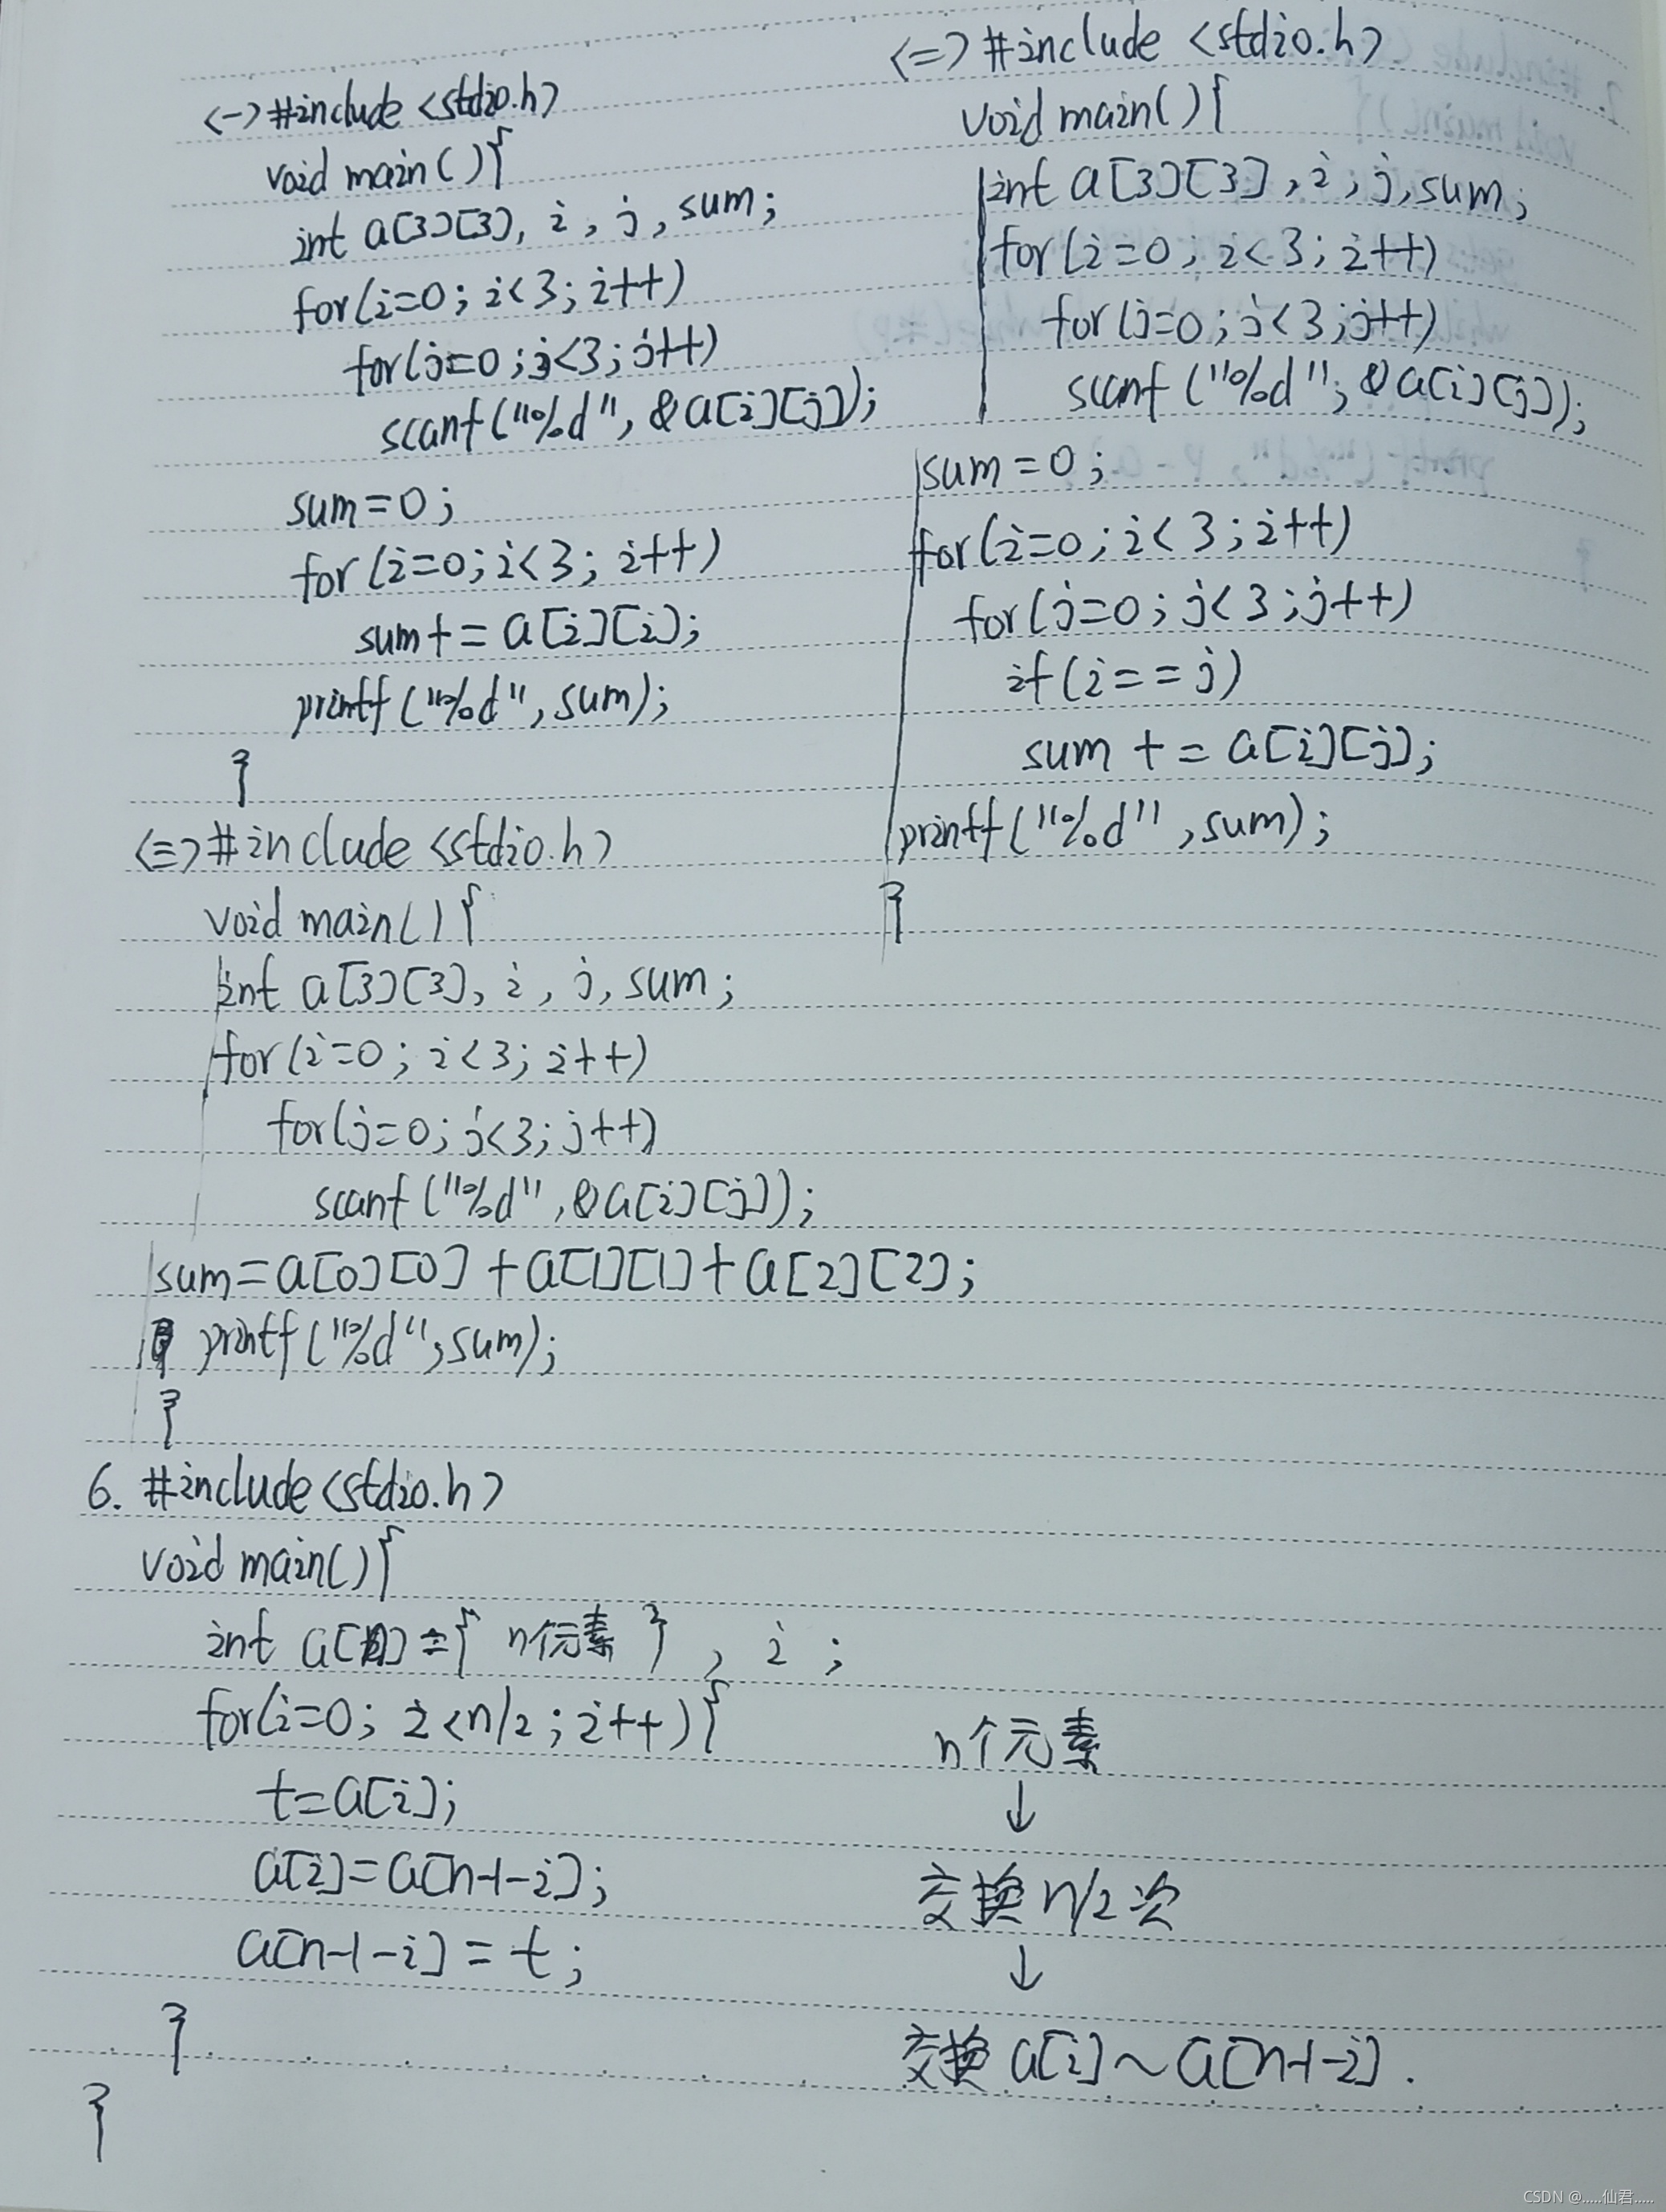 <一> #include <stdio.h>
void main(){
int a[3][3], i, j, sum;
for(i=0; i<3; i++)
for(j=0; j<3; j++)
scanf("%d", &a[i][j]);
sum=0;
for(i=0; i<3; i++)
sum+=a[i][i];
printf("%d", sum);
}
<二> #include <stdio.h>
void main(){
int a[3][3], i, j, sum;
for(i=0; i<3; i++)
for(j=0; j<3; j++)
scanf("%d", &a[i][j]);
sum=0;
for(i=0; i<3; i++)
for(j=0; j<3; j++)
if(i==j)
sum+=a[i][j];
printf("%d", sum);
}
<三> #include <stdio.h>
void main(){
int a[3][3], i, j, sum;
for(i=0; i<3; i++)
for(j=0; j<3; j++)
scanf("%d", &a[i][j]);
sum=a[0][0]+a[1][1]+a[2][2];
printf("%d", sum);
}
6. #include <stdio.h>
void main(){
int a[n]={n个元素}, i;
for(i=0; i<n/2; i++){
t=a[i];
a[i]=a[n-1-i];
a[n-1-i]=t;
}
}
n个元素
↓
交换n/2次
↓
交换a[i]~a[n-1-i].
CSDN @.....仙君.....